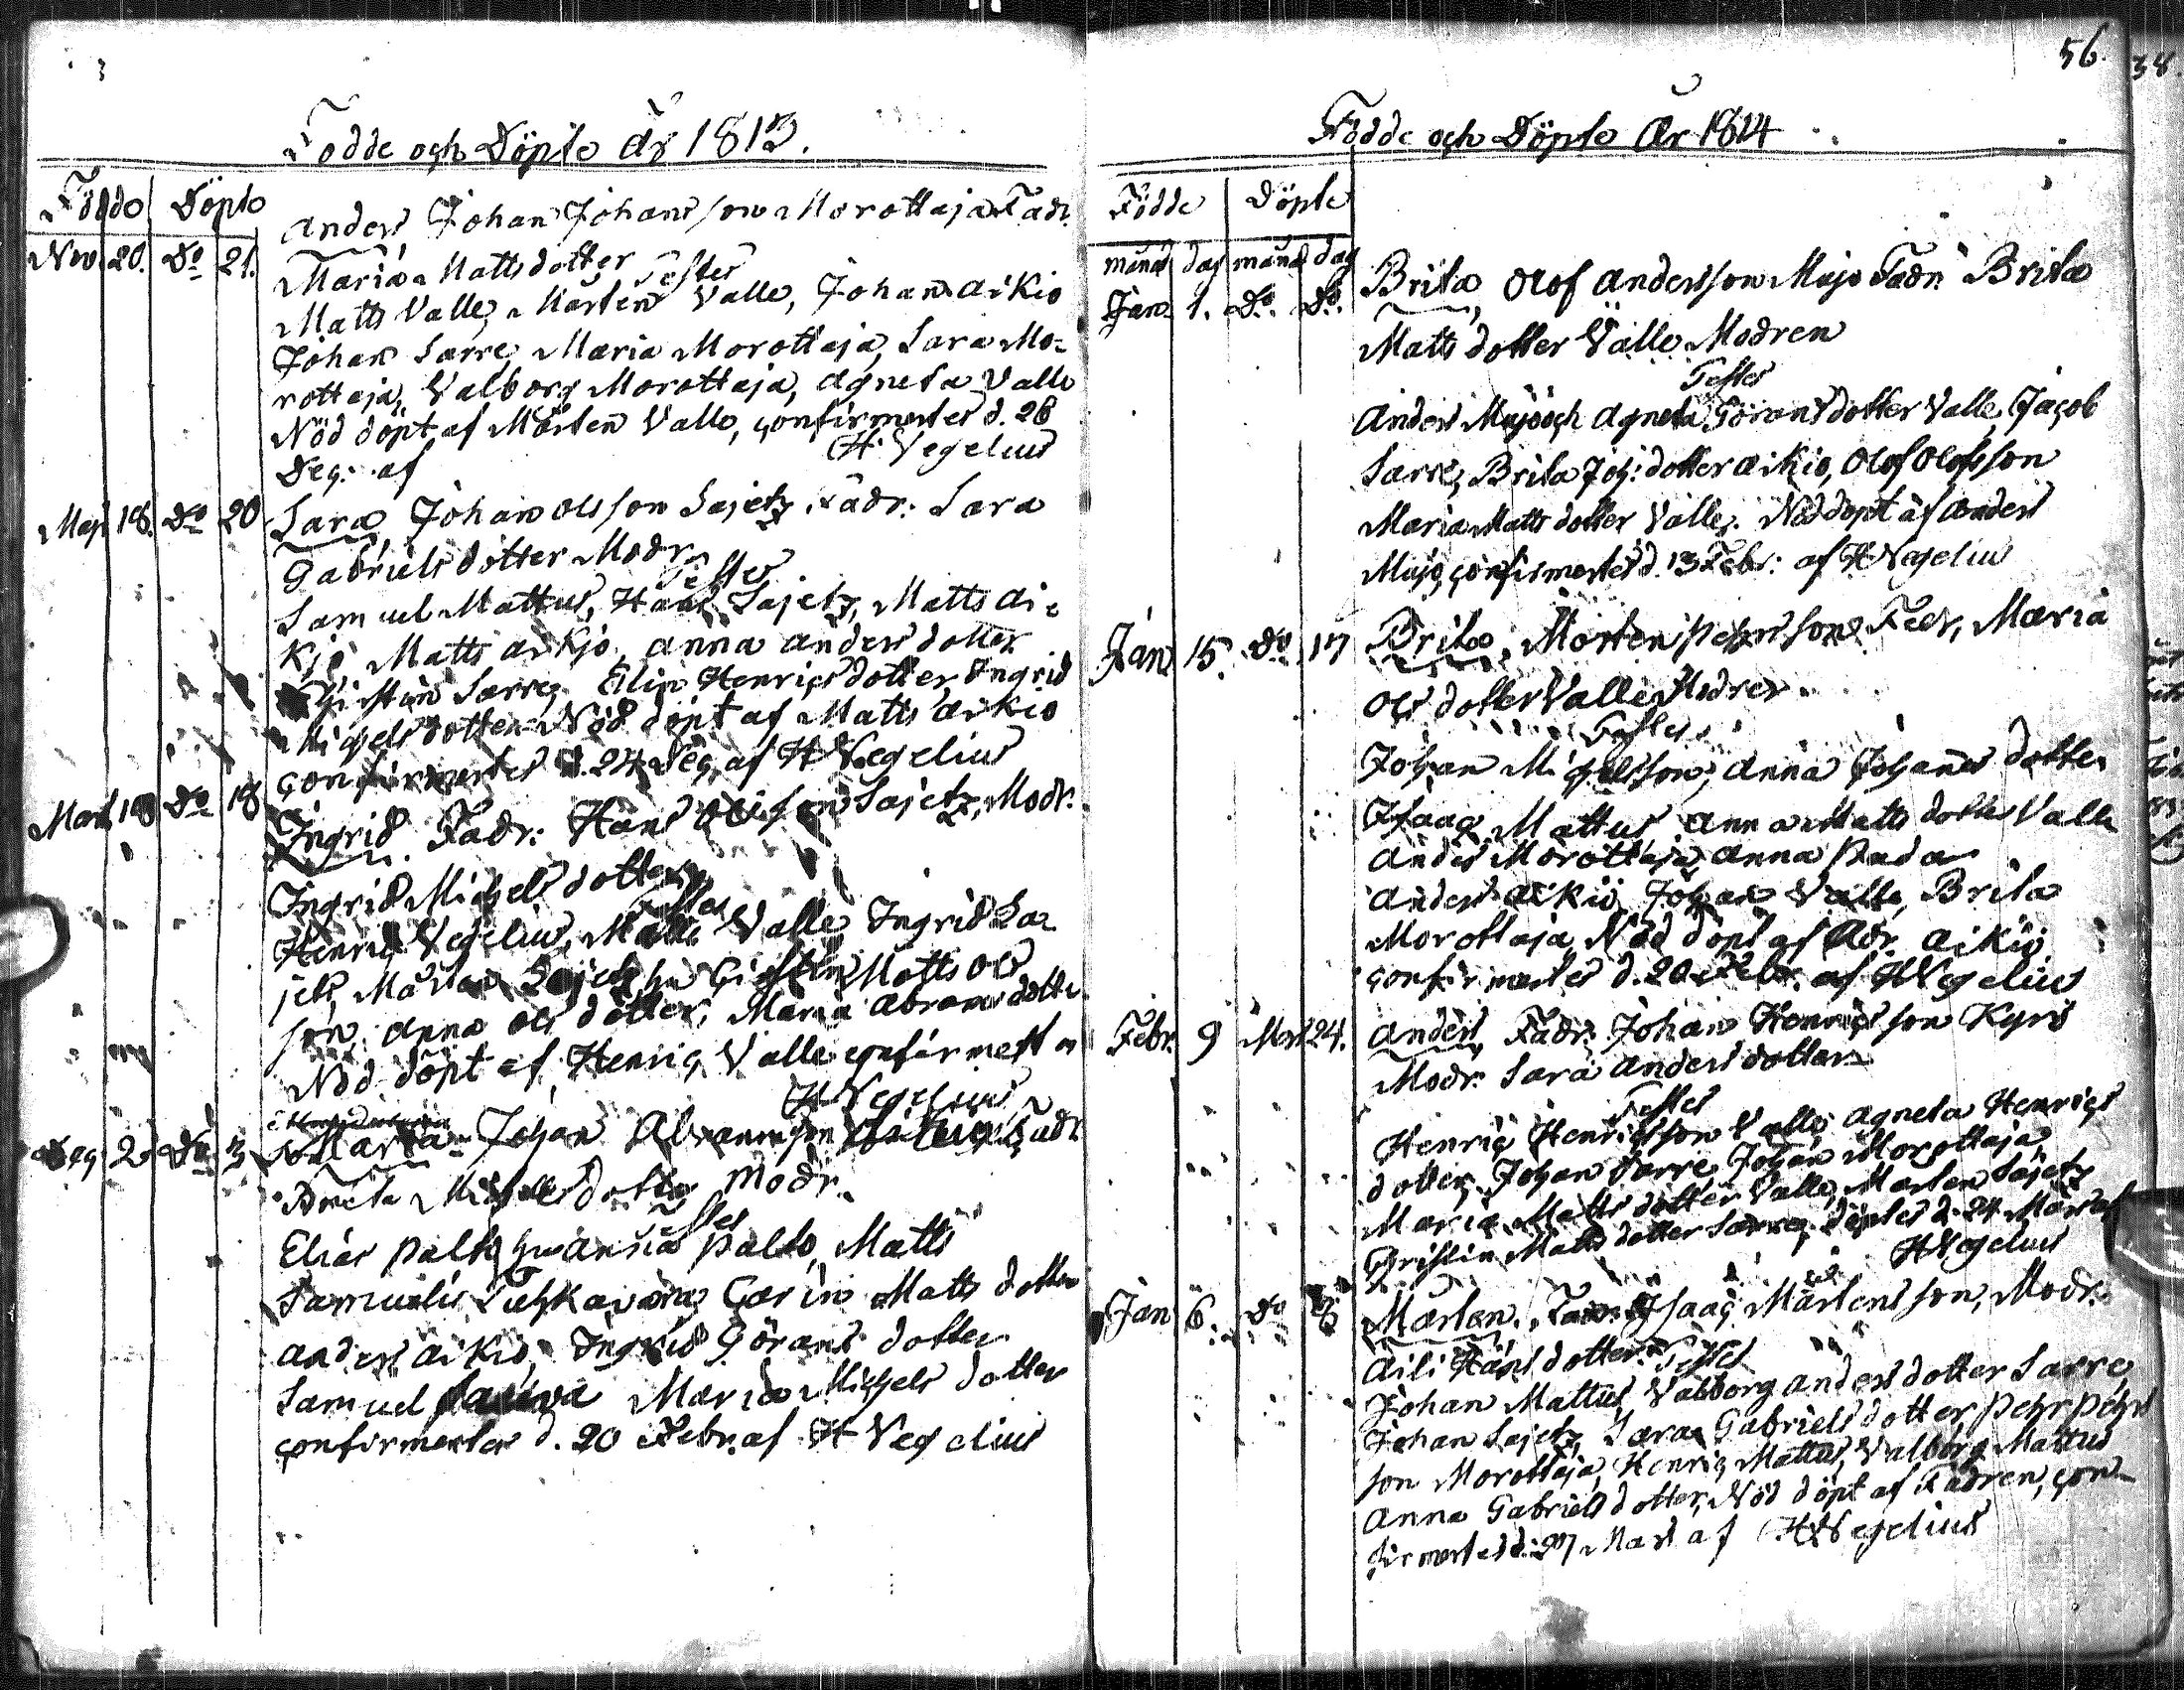 Födde och Döpte År 1813.
Födde Döpte
Nov. 20. Do 21. Anders, Johan Johansson Morottaja Fadr.
Maria Mattsdotter
Testes
Matts Valle, Mårten Valle, Johan Aikio
Johan Sarre, Maria Morottaja, Sara Mo=
rottaja, Valborg Morottaja, Agneta Valle
Nöd döpt af Mårten Valle, confirmertes d. 28
Dec. af H Vegelius
Maji 18. Do 20 Sara, Johan Olsson Sajetz Fadr: Sara
Gabrielsdotter Modr
Testes
Samuel Mattus, Hans Sajetz, Matts Ai=
kio Matts Aikjo, Anna Andersdotter
Christin Sarre, Elin Henricsdotter Ingrid
Michelsdotter Nöd döpt af Matts Aikio
confirmertes d. 24 Dec. af H Vegelius
Mart. 18 Do 18 Ingrid Fadr: Hans Olsson Sajetz, Modr.
Ingrid Michelsdotter
Testes
Henric Vegelius, Matts Valle Ingrid Sa=
jets, Mårten Sajetz hu Cristin Matts Ols
son, Anna Olsdotter, Maria Abramsdotter
Nöd döpt af Henric Valle confirmert af
H Vegelius
Dec 2 Do 3 Maria Johan Abramsson Fadr
Breta Michelsdotter Modr.
Testes
Elias Palto hu Anna Palto, Matts
Samuelis Carin Matts dotter
Anders Aikio, Ingrid Görans dotter
Samuel Maria Michels dotter
confirmertes d. 20 Febr. af H Vegelius
56.
38
Födde och Döpte År 1814
Födde Döpte
månad dag månad dag
Jan. 1. Do. Do. Brita, Olof Andersson Majo Fadr. Brita
Matts dotter Valle Modren
Testes
Anders Majo och Agneta Göransdotter Valle, Jacob
Sarre, Brita Joh: dotter Aikio, Olof Olofsson
Maria Matts dotter Valle. Nöd döpt af Anders
Majo, confirmertes d. 13 Febr: af H Vegelius
Jan 15. Do 17 Brita, Mårten Pehrsson Fadr, Maria
Olsdotter Valle Modren
Testes
Johan Michelsson, Anna Johans dotter
Isaac Mattus Anna Matts dotter Valle
Anders Morottaja, Anna
Anders Aikio Johan Valle, Brita
Morottaja Nöd döpt af Adr. Aikio
confirmertes d. 20 Febr. af H Vegelius
Febr. 9 Mart 24. Anders, Fadr: Johan Henricsson Kyrö
Modr. Sara Andersdotter
Testes
Henric Henricsson Valle Agneta Henrics
dotter, Johan Sarre Johan Morottaja
Maria Matts dotter Valle, Marten Sajetz
Christin Matts dotter Sarre, döptes d. 24 Mars af
H Vegelius
Jan 6. Do Mårten, Fadr. Isaac Mårtensson, Modr.
Aili Hansdotter Testes
Johan Mattus Valborg Andersdotter Sarre
Johan Sajetz, Sara Gabrielsdotter, Pehr Pehrs
son Morottaja, Henric Mattus, Valborg Mattus
Anna Gabrielsdotter, Nöd döpt af Fadren, con=
firmertes d. 27 Mars af H Vegelius